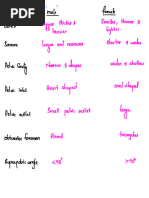 male female
larger thicker & heavier Smaller, thinner & lighter
Sacrum longer and narrower shorter & wider
Pelvic Cavity Narrow & deeper wider & shallow
Pelvic inlet Heart shaped oval shaped
Pelvic outlet Small pelvic outlet large
obturator foramen Round triangular
Suprapubic angle <90° >90°